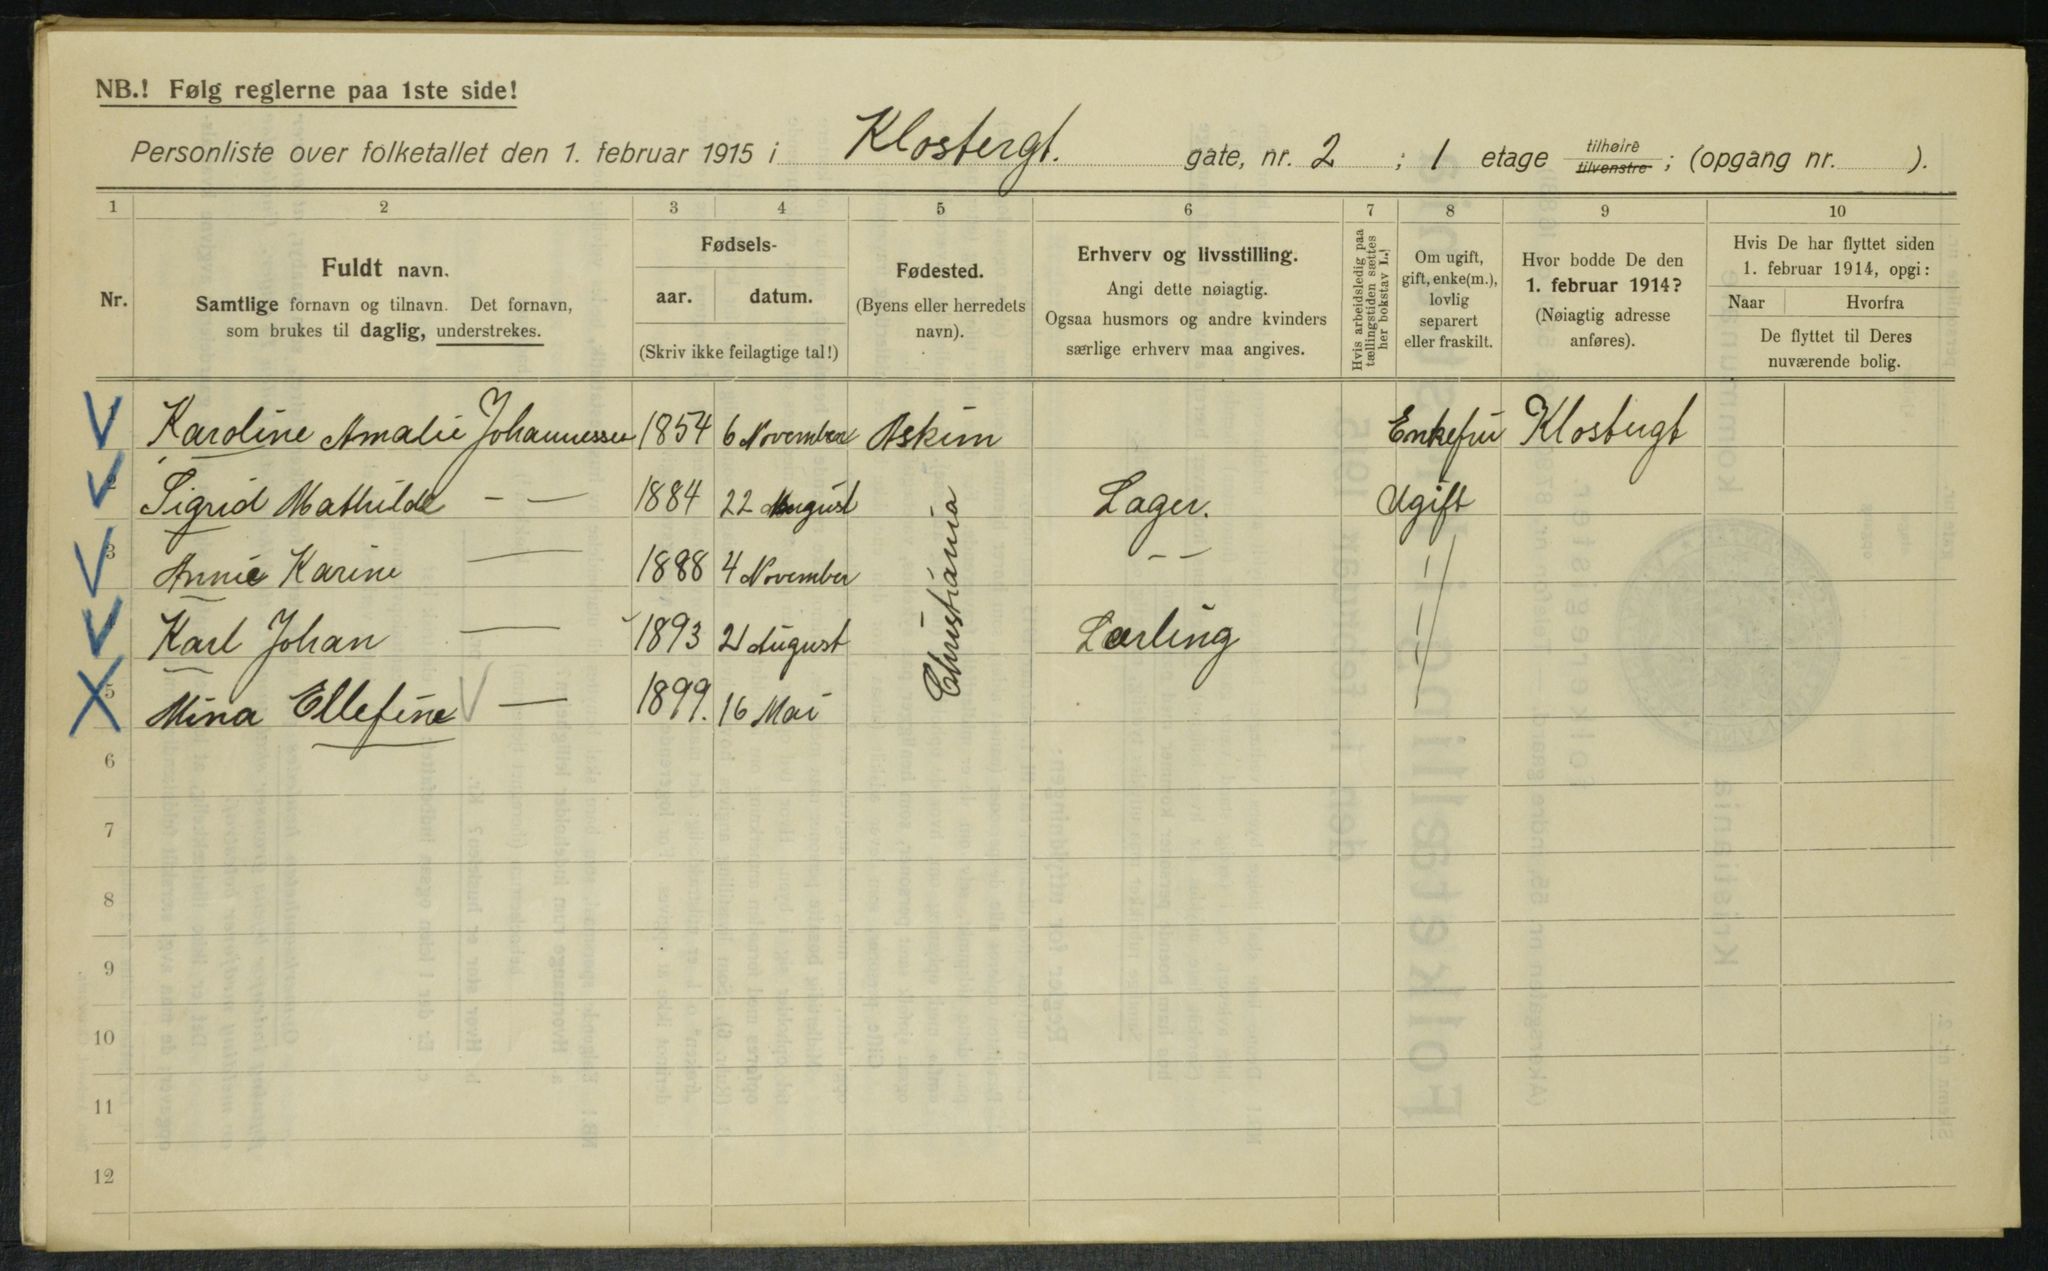 NB.! Følg reglerne paa 1ste side!
Personliste over folketallet den 1. februar 1915 i Klostergt. gate, nr. 2 ; 1 etage tilhøire tilvenstre ; (opgang nr. ).
1 2 3 4 5 6 7 8 9 10
Nr.
Fuldt navn.
Samtlige fornavn og tilnavn. Det fornavn,
som brukes til daglig, understrekes.
Fødsels-
aar. datum.
(Skriv ikke feilagtige tal!)
Fødested.
(Byens eller herredets
navn).
Erhverv og livsstilling.
Angi dette nøiagtig.
Ogsaa husmors og andre kvinders
særlige erhverv maa angives.
Hvis arbeidsledig paa
tællingstiden sættes
her bokstav L.!
Om ugift,
gift, enke(m.),
lovlig
separert
eller fraskilt.
Hvor bodde De den
1. februar 1914?
(Nøiagtig adresse
anføres).
Hvis De har flyttet siden
1. februar 1914, opgi:
Naar Hvorfra
De flyttet til Deres
nuværende bolig.
1 Karoline Amalie Johannessen 1854 6 November Askim Enkefru Klostergt
2 Sigrid Mathilde — — 1884 22 August Christiania Lager. Ugift
3 Annie Karine — 1888 4 November — — "
4 Karl Johan — 1893 21 August Lærling "
5 Mina Ellefine — 1899. 16 Mai
6
7
8
9
10
11
12